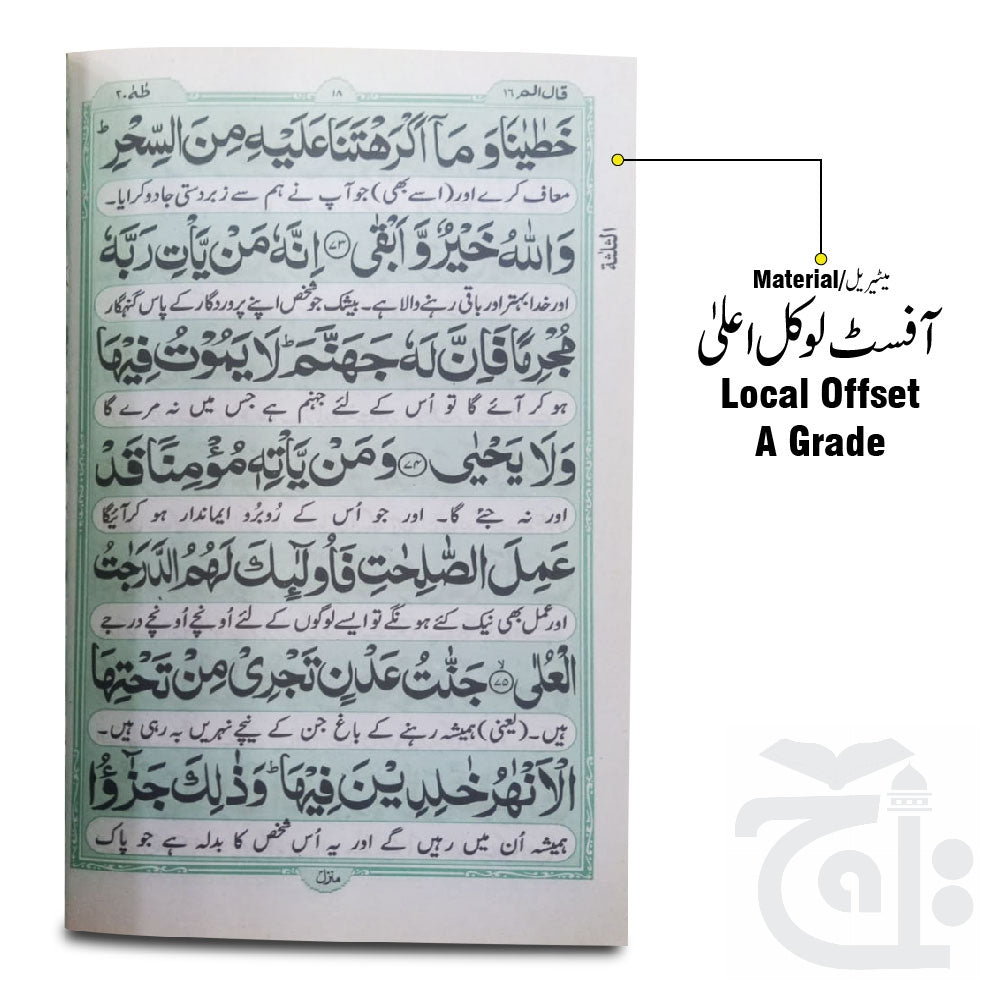 قال الم ١٦
١٨
طٰهٰ ٢٠
خَطٰيٰنَا وَ مَاۤ اَكْرَهْتَنَا عَلَيْهِ مِنَ السِّحْرِ ؕ
معاف کرے اور (اسے بھی) جو آپ نے ہم سے زبردستی جادو کرایا۔
وَاللّٰهُ خَيْرٌ وَّ اَبْقٰى ﴿٧٣﴾ اِنَّهٗ مَنْ يَّاْتِ رَبَّهٗ
اور خدا بہتر اور باقی رہنے والا ہے۔ بیشک جو شخص اپنے پروردگار کے پاس گنہگار
مُجْرِمًا فَاِنَّ لَهٗ جَهَنَّمَ ؕ لَا يَمُوْتُ فِيْهَا
ہو کر آئے گا تو اُس کے لئے جہنم ہے جس میں نہ مرے گا
وَلَا يَحْيٰى ﴿٧٤﴾ وَمَنْ يَّاْتِهٖ مُؤْمِنًا قَدْ
اور نہ جئے گا۔ اور جو اُس کے رُوبرُو ایماندار ہو کر آئیگا
عَمِلَ الصّٰلِحٰتِ فَاُولٰٓئِكَ لَهُمُ الدَّرَجٰتُ
اور عمل بھی نیک کئے ہونگے تو ایسے لوگوں کے لئے اُونچے اُونچے درجے
الْعُلٰى ﴿٧٥﴾ۙ جَنّٰتُ عَدْنٍ تَجْرِيْ مِنْ تَحْتِهَا
ہیں۔ (یعنی) ہمیشہ رہنے کے باغ جن کے نیچے نہریں بہ رہی ہیں۔
الْاَنْهٰرُ خٰلِدِيْنَ فِيْهَا ؕ وَذٰلِكَ جَزٰٓؤُا
ہمیشہ اُن میں رہیں گے اور یہ اُس شخص کا بدلہ ہے جو پاک
منزل
الثلٰثة
Material/میٹیریل
آفسٹ لوکل اعلیٰ
Local Offset
A Grade